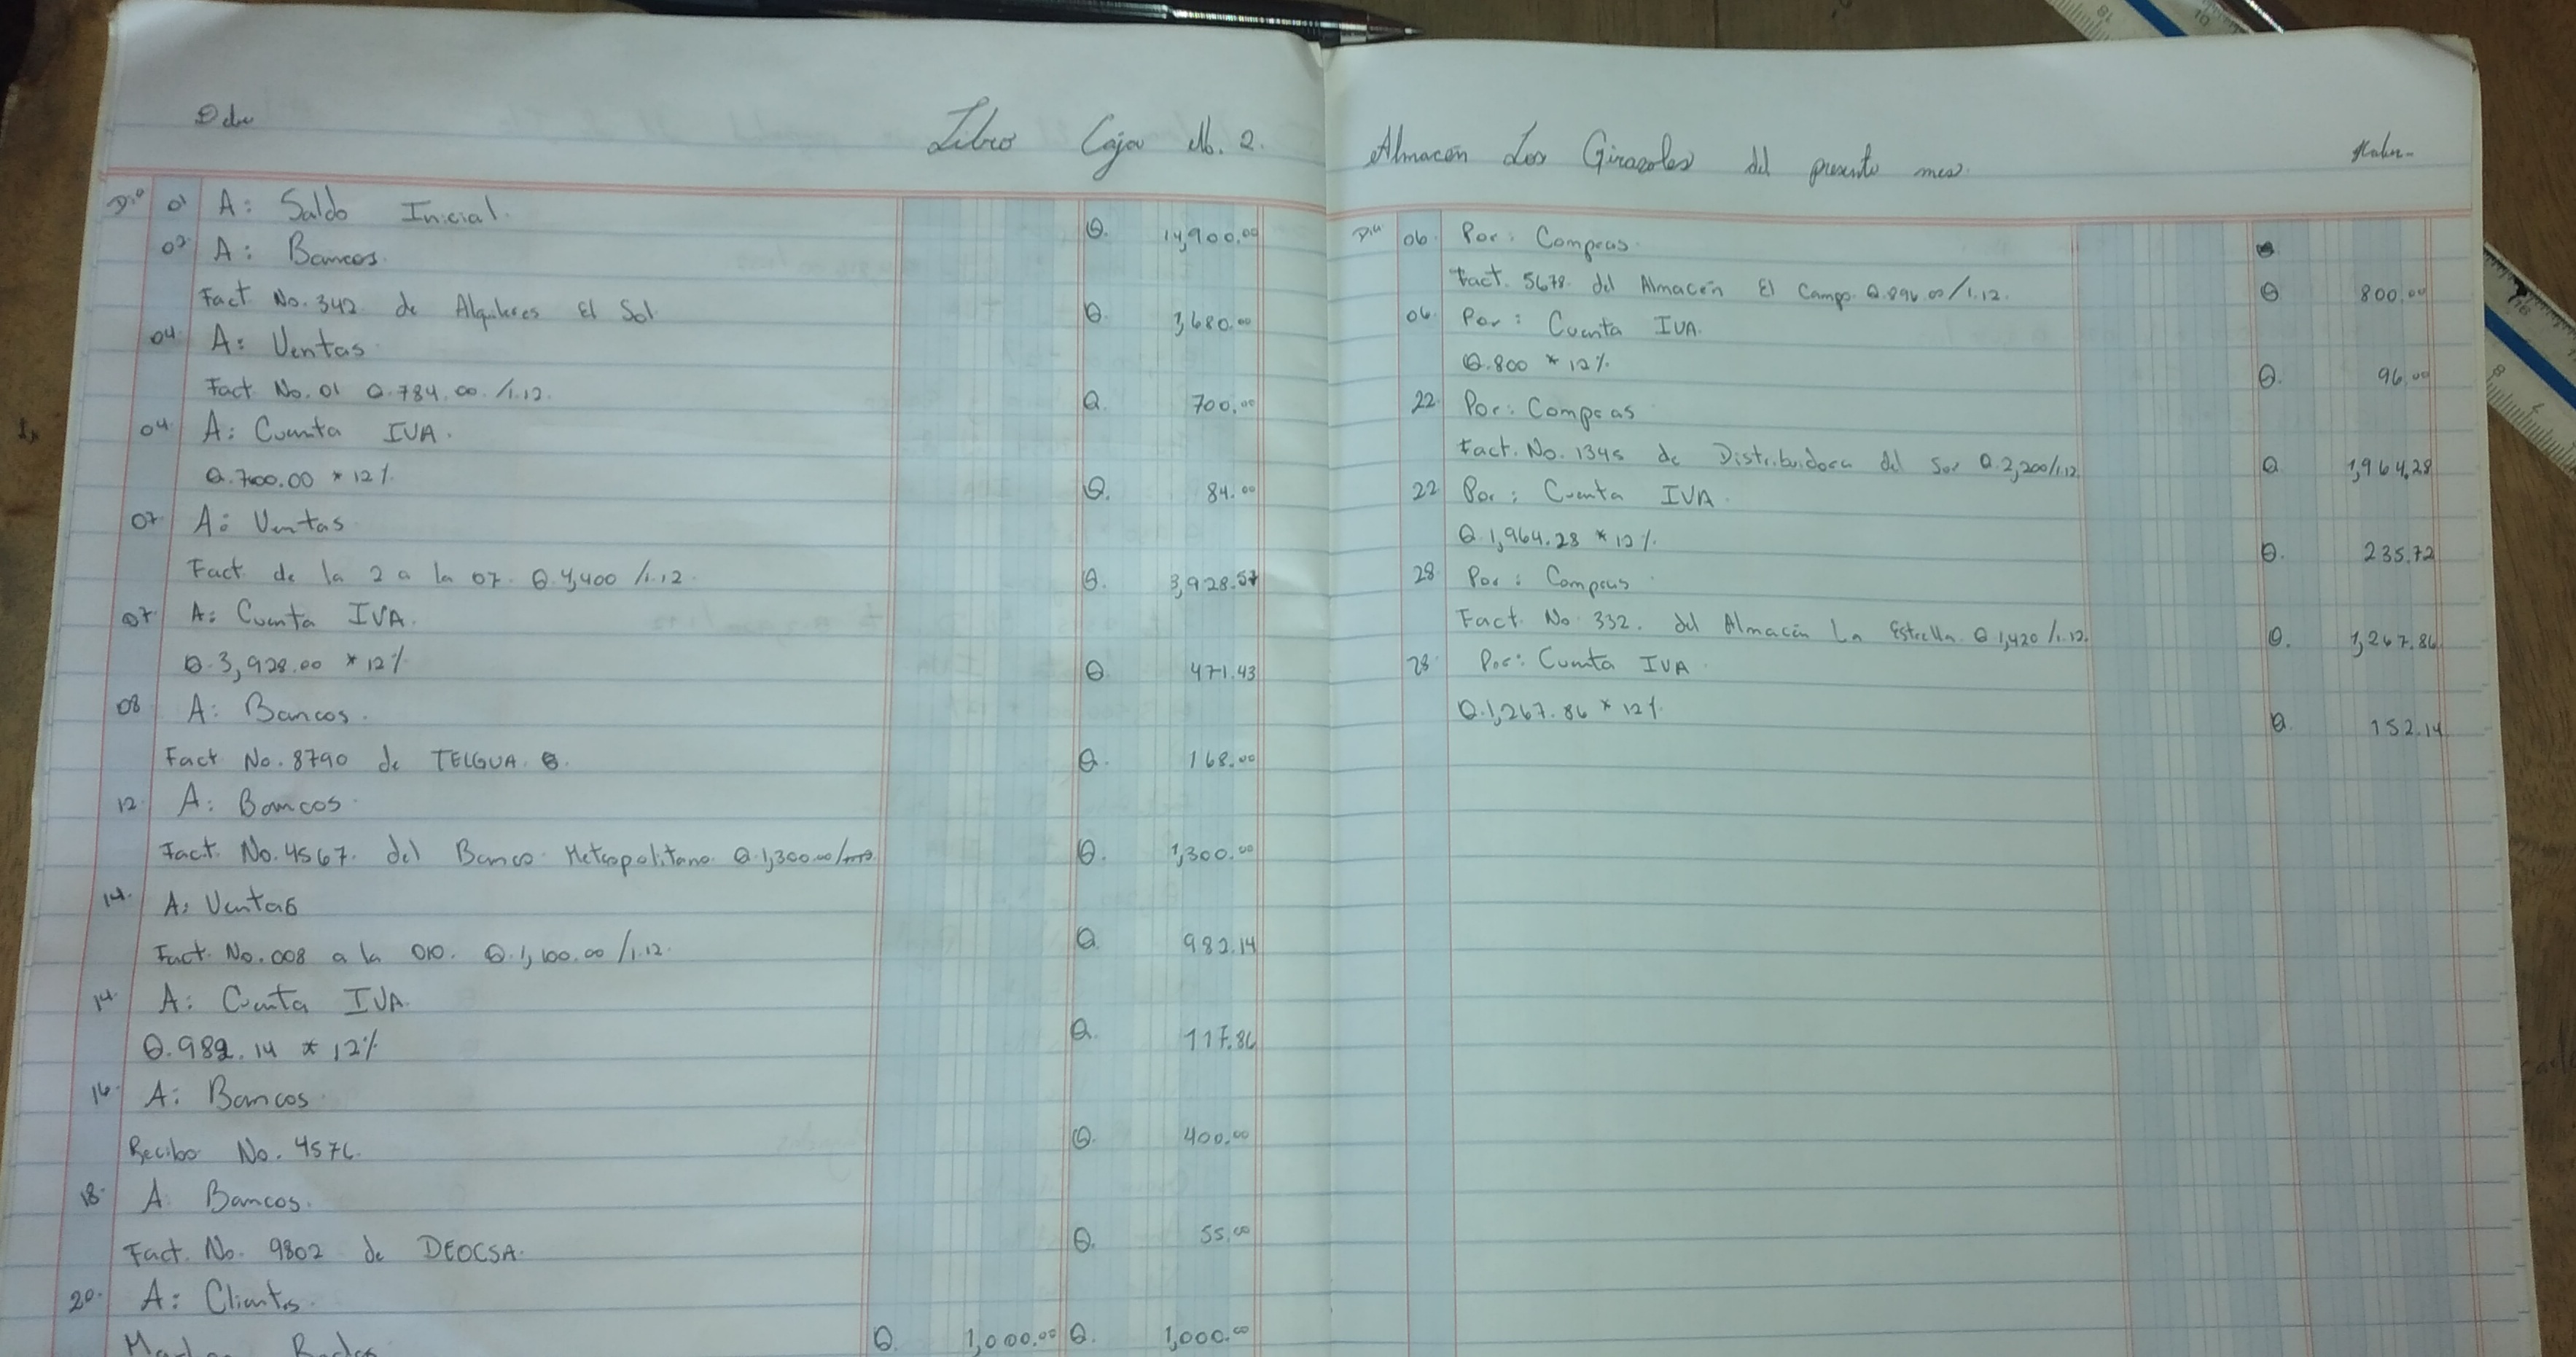 Debe Libro Caja No. 2.
Día 01 A: Saldo Inicial. Q. 14,900.00
02 A: Bancos.
Fact No. 342. de Alquileres El Sol Q. 1,680.00
04 A: Ventas
Fact. No. 01 Q.784.00./1.12. Q. 700.00
04 A: Cuenta IVA.
Q.700.00 * 12% Q. 84.00
07 A: Ventas
Fact de la 2 a la 07. Q.4,400 /1.12. Q. 3,928.57
07 A: Cuenta IVA.
Q.3,928.00 * 12% Q. 471.43
08 A: Bancos.
Fact No. 8790 de TELGUA. Q. 168.00
12 A: Bancos.
Fact. No. 4567. del Banco Metropolitano Q.1,300.00/ Q. 1,300.00
14. A: Ventas
Fact. No. 008 a la 010. Q.1,100.00 /1.12. Q. 982.14
14 A: Cuenta IVA.
Q.982.14 * 12% Q. 117.86
16 A: Bancos.
Recibo No. 4576. Q. 400.00
18. A Bancos.
Fact. No. 9802 de DEOCSA. Q. 55.00
20. A: Clientes.
Q. 1,000.00 Q. 1,000.00
Almacén Los Girasoles del presente mes. Haber
Día 06 Por: Compras.
Fact. 5678. del Almacén El Campo. Q.896.00/1.12. Q 800.00
06. Por: Cuenta IVA.
Q.800 * 12% Q. 96.00
22 Por: Compras
Fact. No. 1345 de Distribuidora del Sur Q.2,200/1.12 Q 1,964.28
22 Por: Cuenta IVA.
Q.1,964.28 * 12%. Q. 235.72
28 Por: Compras
Fact. No 332. del Almacén La Estrella. Q 1,420 /1.12. Q. 1,267.86
28 Por: Cuenta IVA
Q.1,267.86 * 12% Q. 152.14